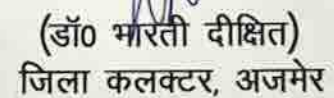 (डॉ0 भारती दीक्षित)
जिला कलक्टर, अजमेर